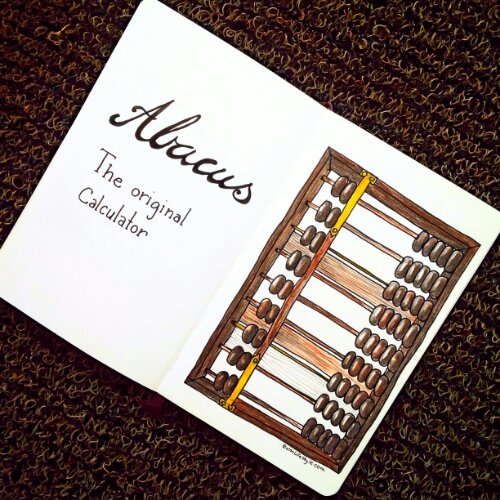 Abacus
The original
Calculator